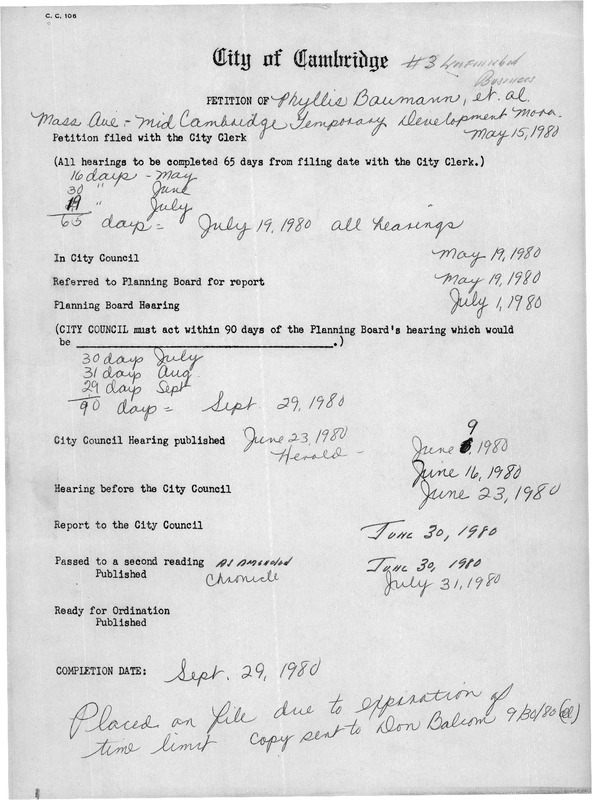 C. C. 106
City of Cambridge #3 Unfinished
Business
PETITION OF Phyllis Baumann, et. al.
Mass Ave - Mid Cambridge Temporary Development Mora.
Petition filed with the City Clerk May 15, 1980
(All hearings to be completed 65 days from filing date with the City Clerk.)
16 days - May
30 " June
19 " July
65 days = July 19, 1980 all hearings
In City Council May 19, 1980
Referred to Planning Board for report May 19, 1980
Planning Board Hearing July 1, 1980
(CITY COUNCIL must act within 90 days of the Planning Board's hearing which would
be ____________________.)
30 days July
31 days Aug
29 days Sept
90 days = Sept. 29, 1980
City Council Hearing published June 23, 1980 June 9, 1980
Herald - June 16, 1980
Hearing before the City Council June 23, 1980
Report to the City Council June 30, 1980
Passed to a second reading As Amended June 30, 1980
Published Chronicle July 31, 1980
Ready for Ordination
Published
COMPLETION DATE: Sept. 29, 1980
Placed on file due to expiration of
time limit copy sent to Don Balcom 9/30/80